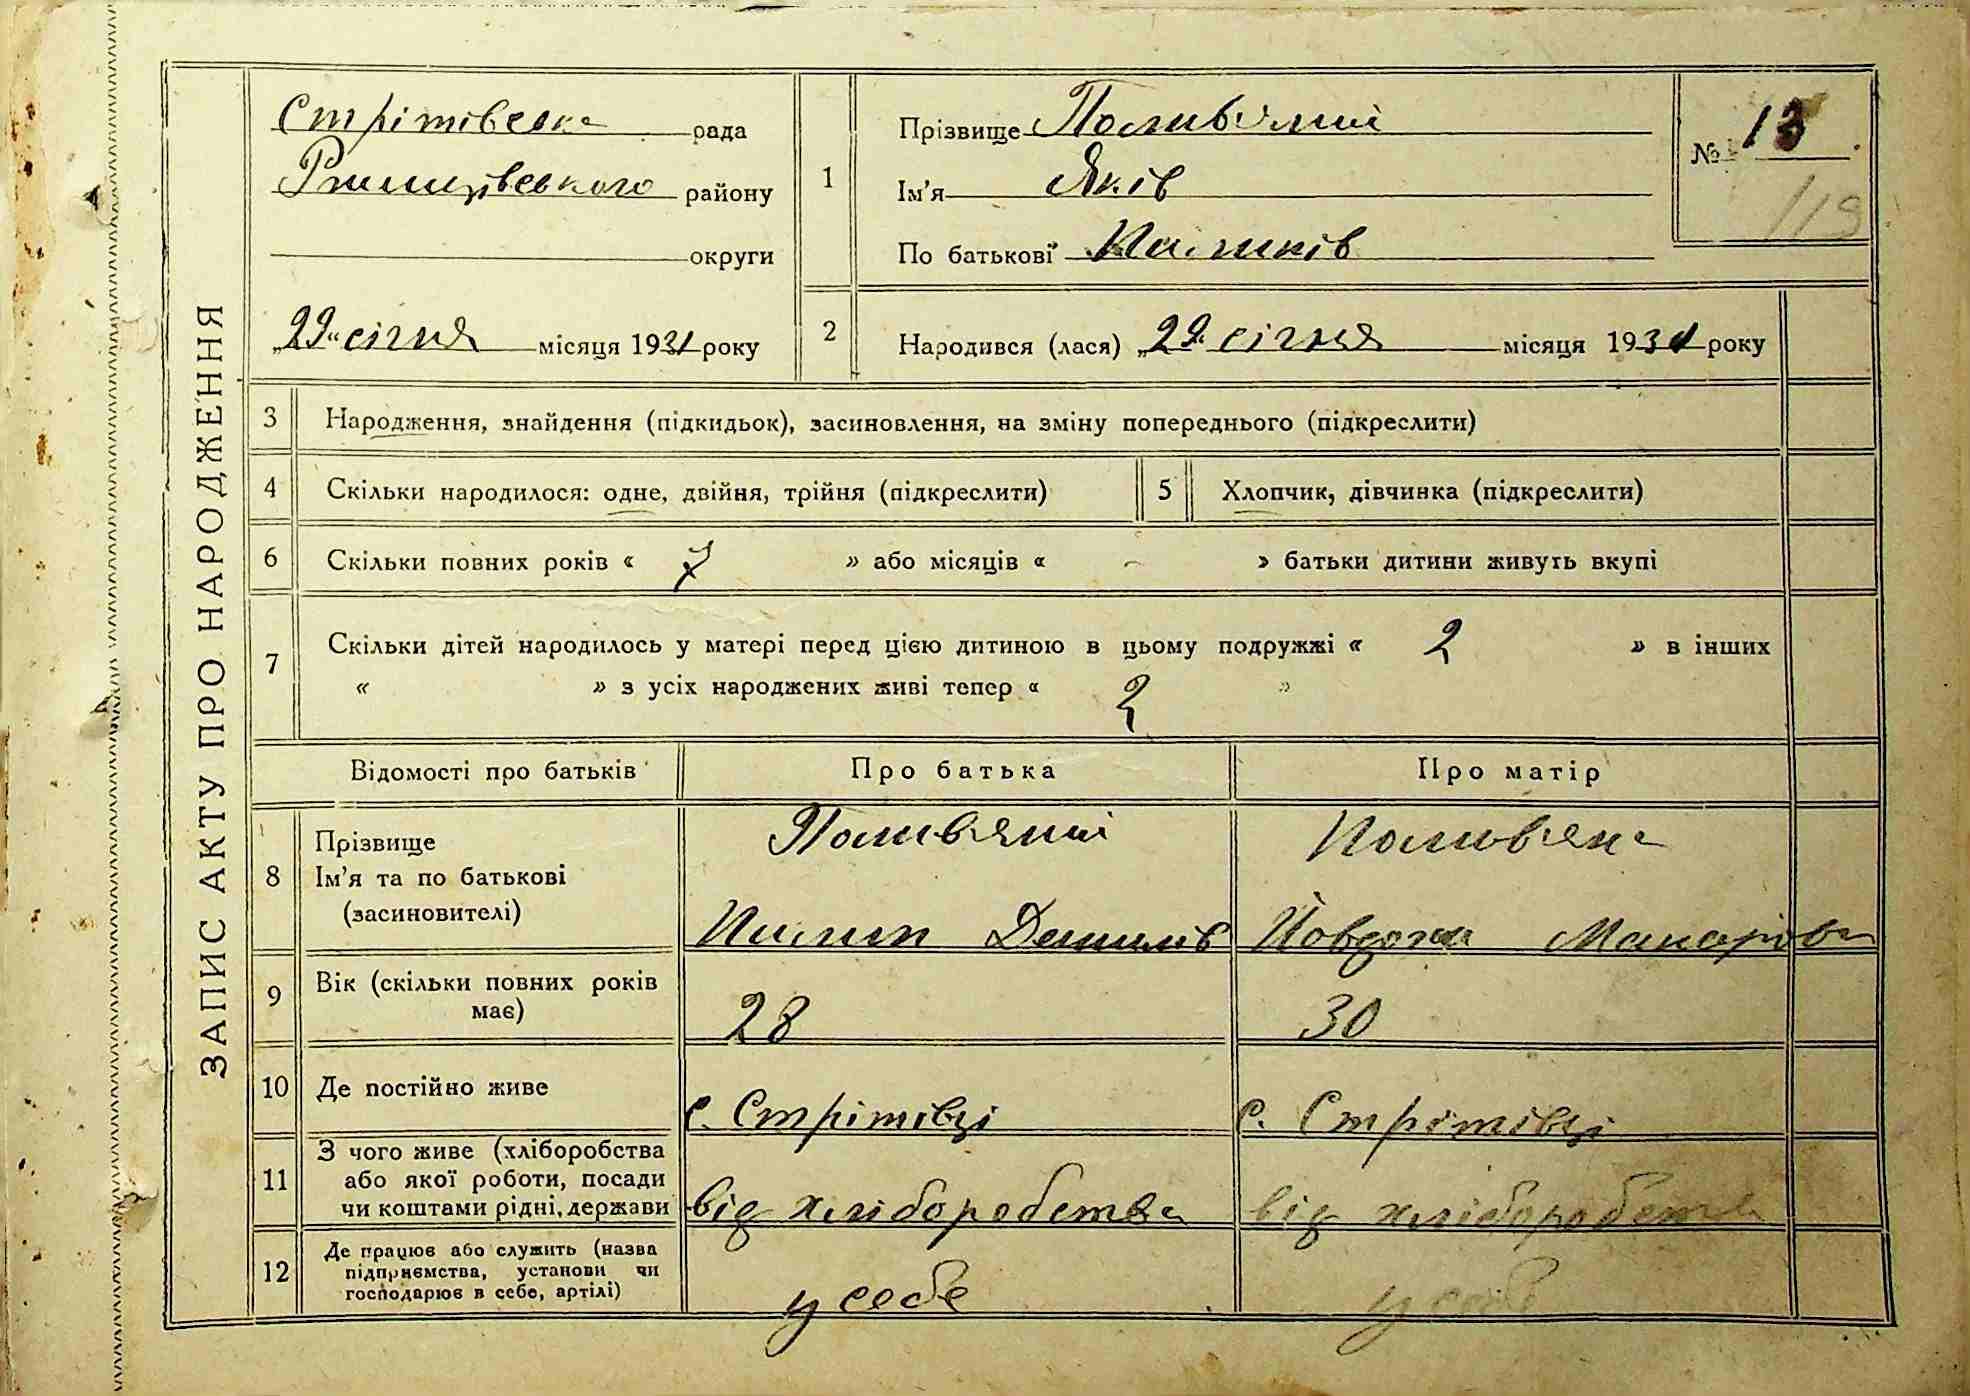 ЗАПИС АКТУ ПРО НАРОДЖЕННЯ
Стрітівська рада
Ржищівського району
округи
„29“ січня місяця 1931 року
1
Прізвище Полив'яний
Ім'я Яків
По батькові Пилипів
№ 13
119
2
Народився (лася) „29“ січня місяця 1931 року
3 Народження, знайдення (підкидьок), засиновлення, на зміну попереднього (підкреслити)
4 Скільки народилося: одне, двійня, трійня (підкреслити)
5 Хлопчик, дівчинка (підкреслити)
6 Скільки повних років « 7 » або місяців « - » батьки дитини живуть вкупі
7 Скільки дітей народилось у матері перед цією дитиною в цьому подружжі « 2 » в інших
« » з усіх народжених живі тепер « 2 »
Відомості про батьків Про батька Про матір
8 Прізвище
Ім'я та по батькові
(засиновителі)
Полив'яний
Пилип Данилів
Полив'яна
Йовдоха Макарова
9 Вік (скільки повних років
має)
28
30
10 Де постійно живе
с. Стрітівці
с. Стрітівці
11 З чого живе (хліборобства
або якої роботи, посади
чи коштами рідні, держави
від хліборобства
від хліборобства
12 Де працює або служить (назва
підприємства, установи чи
господарює в себе, артілі)
у себе
у себе